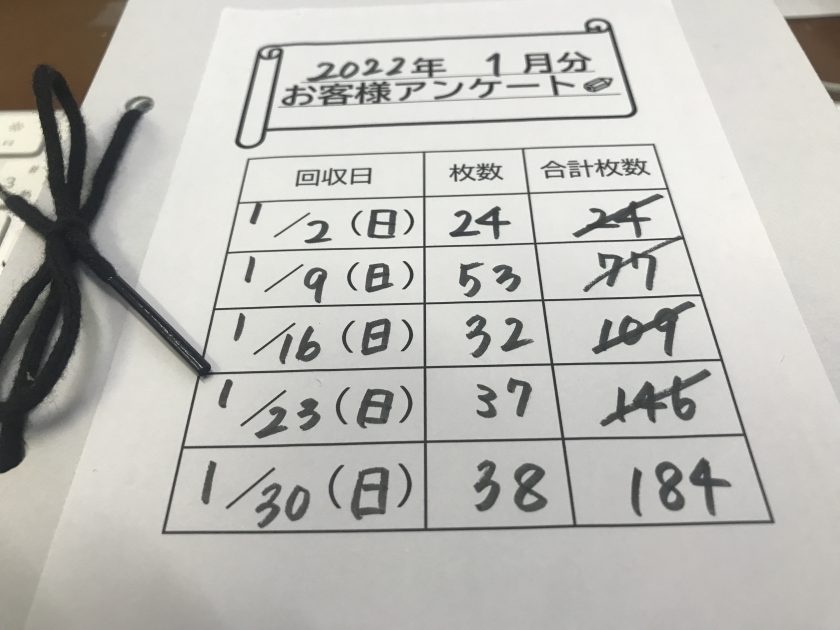 2022年 1月分
お客様アンケート
回収日 枚数 合計枚数
1/2(日) 24 24
1/9(日) 53 77
1/16(日) 32 109
1/23(日) 37 146
1/30(日) 38 184